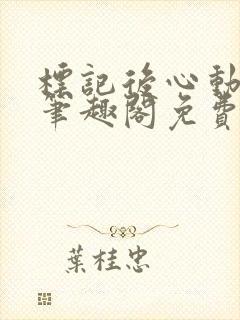 標記後心動
筆趣閣免費
葉桂忠